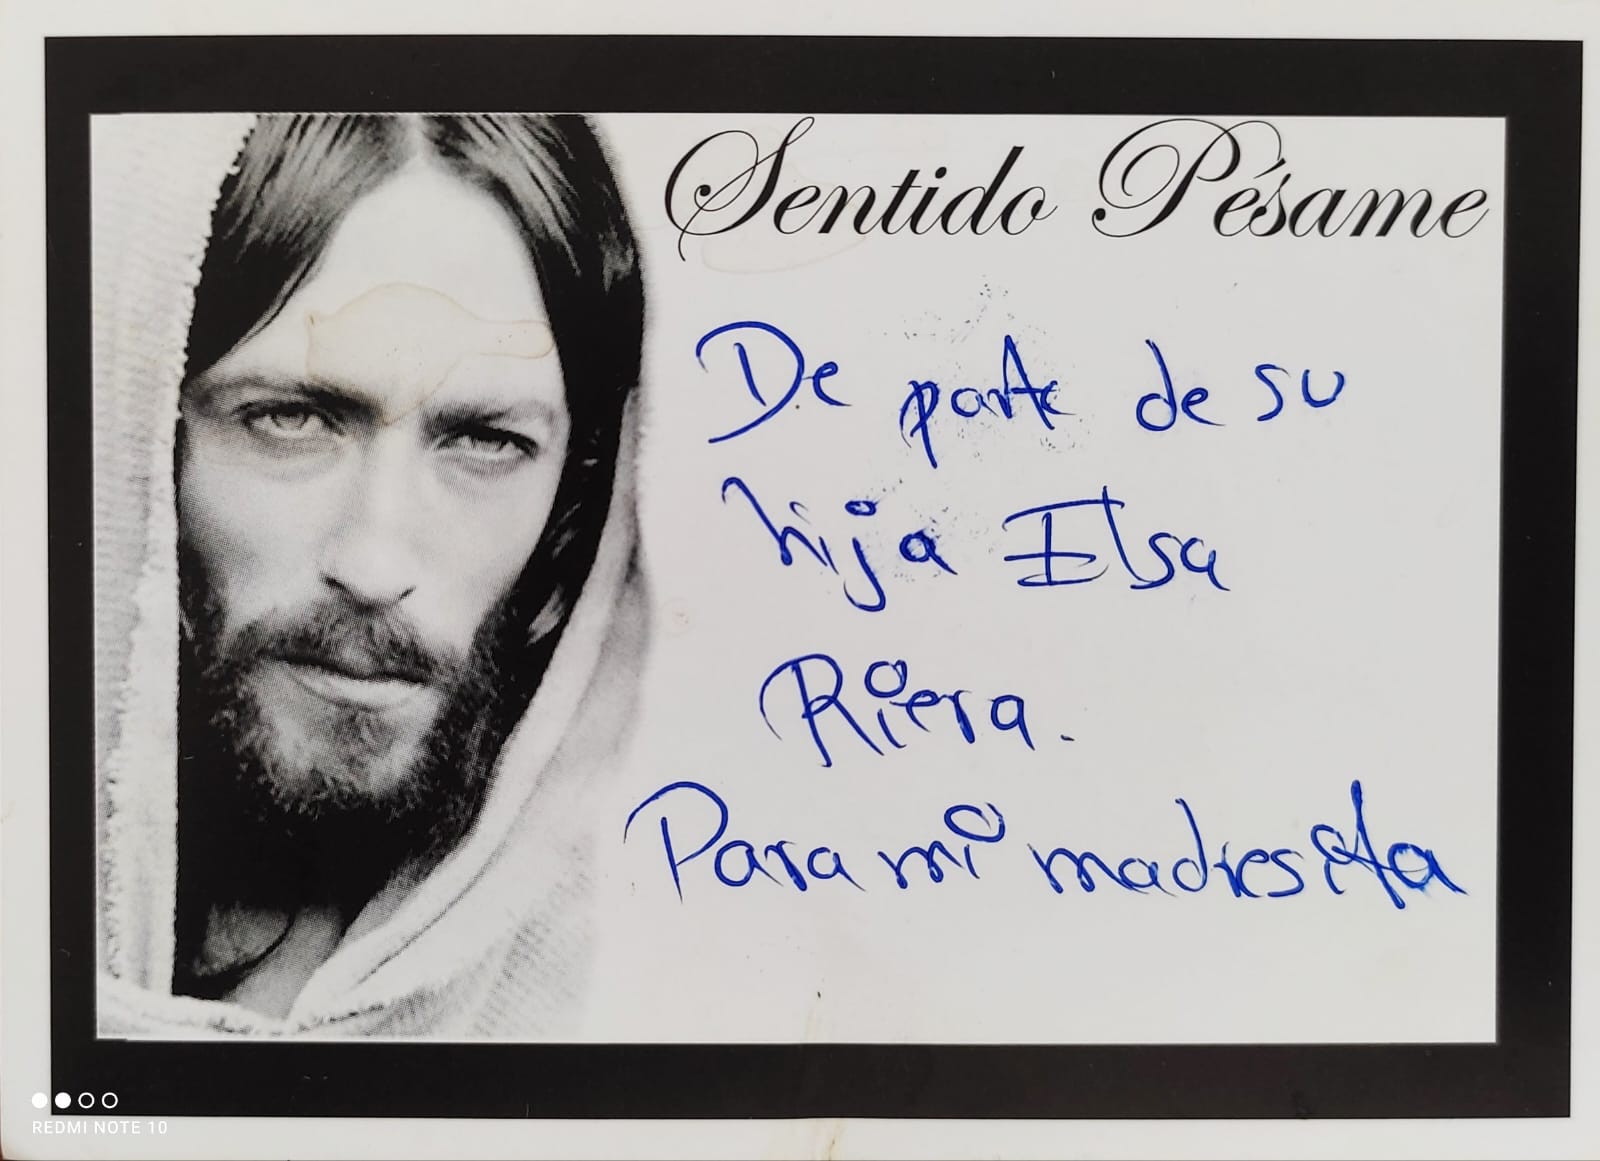 Sentido Pésame
De parte de su
hija Elsa
Riera.
Para mi madresita
REDMI NOTE 10